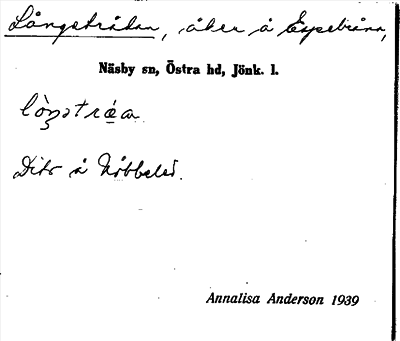 Långstrådan, åker å Espebränn,
Näsby sn, Östra hd, Jönk. l.
Dito å Nöbbeled.
Annalisa Anderson 1939